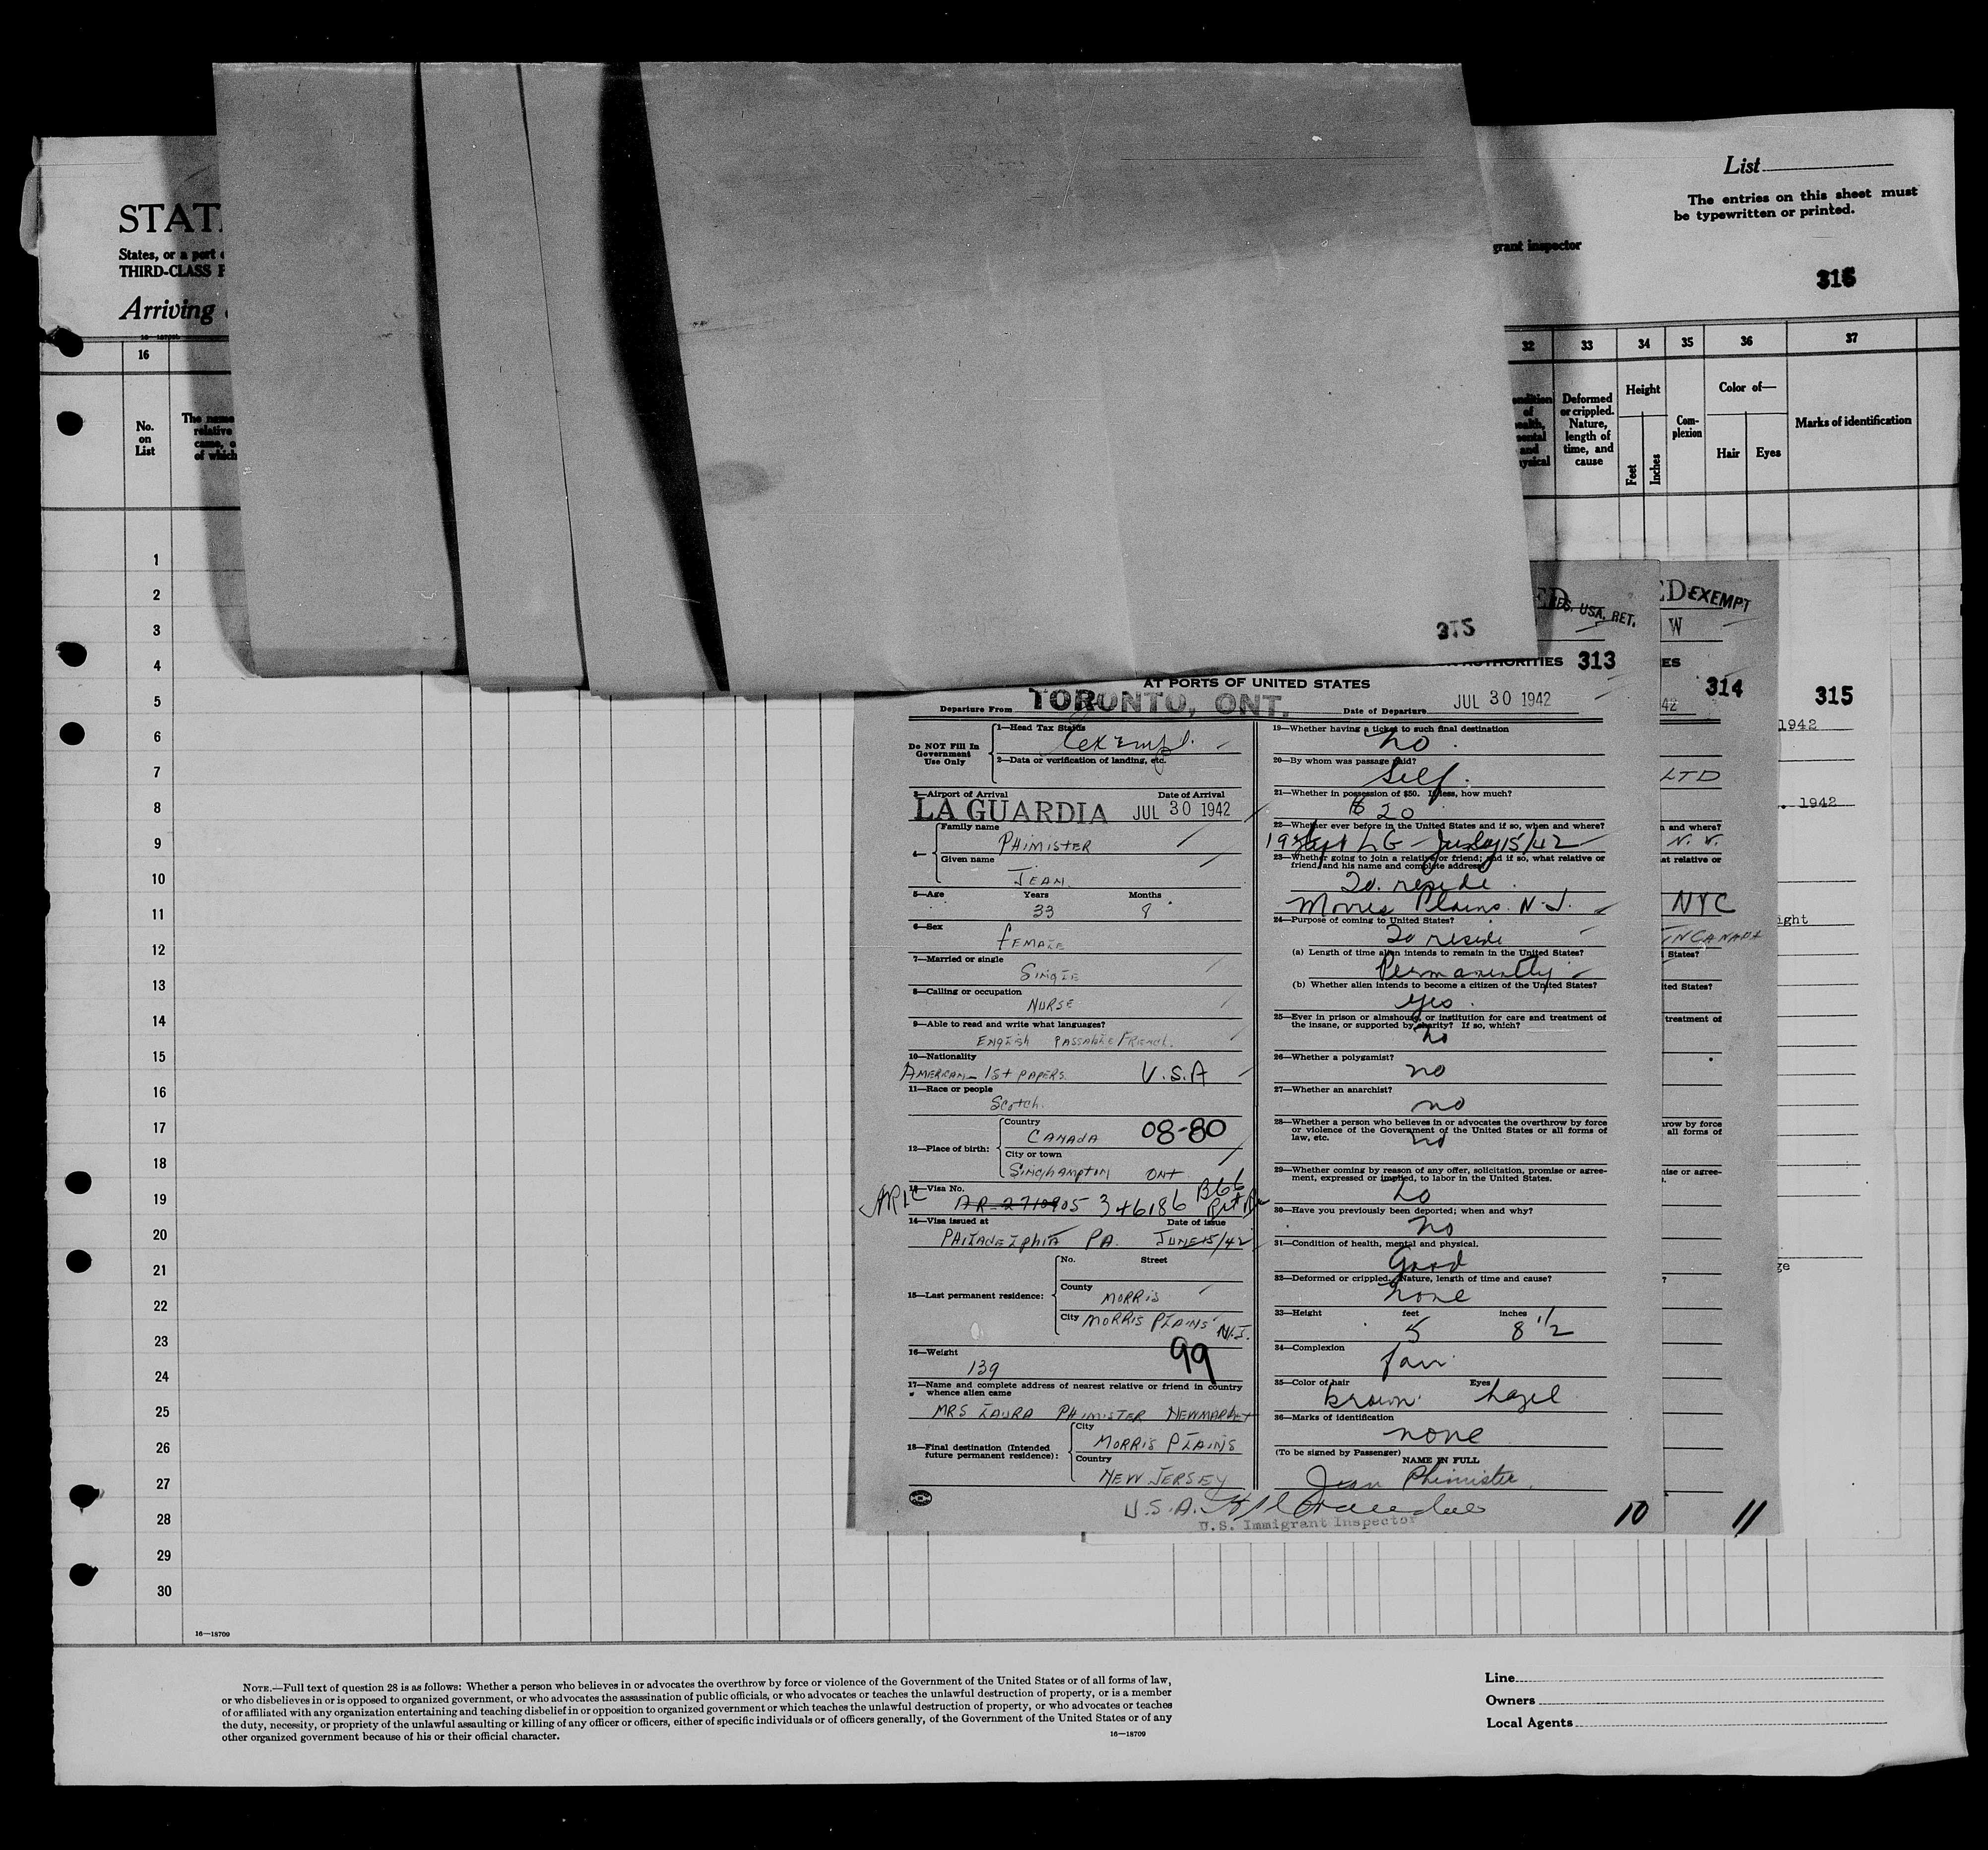 List
The entries on this sheet must
be typewritten or printed.
STAT
States, or a port
THIRD-CLASS P
Arriving
grant inspector
316
16 32 33 34 35 36 37
No.
on
List
The name
relative
came, o
of which
ondition
of
health,
mental
and
ysical
Deformed
or crippled.
Nature,
length of
time, and
cause
Height
Feet
Inches
Com-
plexion
Color of—
Hair Eyes
Marks of identification
1
2
3
4
5
6
7
8
9
10
11
12
13
14
15
16
17
18
19
20
21
22
23
24
25
26
27
28
29
30
16—18709
315
ED
RES. USA. RET.
AUTHORITIES 313
AT PORTS OF UNITED STATES
Departure From TORONTO, ONT. Date of Departure JUL 30 1942
Do NOT Fill In
Government
Use Only
1—Head Tax Status
Exempt.
2—Data or verification of landing, etc.
3—Airport of Arrival Date of Arrival
LA GUARDIA JUL 30 1942
4—
Family name
PHIMISTER
Given name
JEAN
5—Age Years Months
33 9
6—Sex
FEMALE
7—Married or single
SINGLE
8—Calling or occupation
NURSE
9—Able to read and write what languages?
ENGLISH PASSABLE FRENCH.
10—Nationality
AMERICAN - 1st PAPERS. U.S.A
11—Race or people
Scotch.
12—Place of birth:
Country
CANADA 08-80
City or town
SINGHAMPTON ONT
13—Visa No.
AR-2710905 346186 B66
14—Visa issued at Date of issue
PHILADELPHIA PA. JUNE 15/42
15—Last permanent residence:
No. Street
County
MORRIS
City MORRIS PLAINS N.J.
16—Weight
139 99
17—Name and complete address of nearest relative or friend in country
whence alien came
MRS LAURA PHIMISTER NEWMARKET
18—Final destination (Intended
future permanent residence):
City
MORRIS PLAINS
Country
NEW JERSEY
U.S.A.
U.S. Immigrant Inspector
19—Whether having a ticket to such final destination
no
20—By whom was passage paid?
Self.
21—Whether in possession of $50. If less, how much?
$ 20
22—Whether ever before in the United States and if so, when and where?
LG July 15/42
23—Whether going to join a relative or friend; and if so, what relative or
friend and his name and complete address
To reside
Morris Plains. N.J.
24—Purpose of coming to United States?
To reside
(a) Length of time alien intends to remain in the United States?
Permanently
(b) Whether alien intends to become a citizen of the United States?
yes
25—Ever in prison or almshouse, or institution for care and treatment of
the insane, or supported by charity? If so, which?
no
26—Whether a polygamist?
no
27—Whether an anarchist?
no
28—Whether a person who believes in or advocates the overthrow by force
or violence of the Government of the United States or all forms of
law, etc.
no
29—Whether coming by reason of any offer, solicitation, promise or agree-
ment, expressed or implied, to labor in the United States.
no
30—Have you previously been deported; when and why?
no
31—Condition of health, mental and physical.
Good
32—Deformed or crippled. Nature, length of time and cause?
none
33—Height feet inches
5 8 1/2
34—Complexion
fair
35—Color of hair Eyes
brown hazel
36—Marks of identification
none
(To be signed by Passenger)
NAME IN FULL
Jean Phimister.
10
ED EXEMPT
W
ES
314
42
LTD
n and where?
N.Y.
at relative or
NYC
INCANADA
States?
ited States?
treatment of
row by force
all forms of
mise or agree-
?
11
315
1942
1942
ight
ge
NOTE.—Full text of question 28 is as follows: Whether a person who believes in or advocates the overthrow by force or violence of the Government of the United States or of all forms of law,
or who disbelieves in or is opposed to organized government, or who advocates the assassination of public officials, or who advocates or teaches the unlawful destruction of property, or is a member
of or affiliated with any organization entertaining and teaching disbelief in or opposition to organized government or which teaches the unlawful destruction of property, or who advocates or teaches
the duty, necessity, or propriety of the unlawful assaulting or killing of any officer or officers, either of specific individuals or of officers generally, of the Government of the United States or of any
other organized government because of his or their official character.
16—18709
Line
Owners
Local Agents